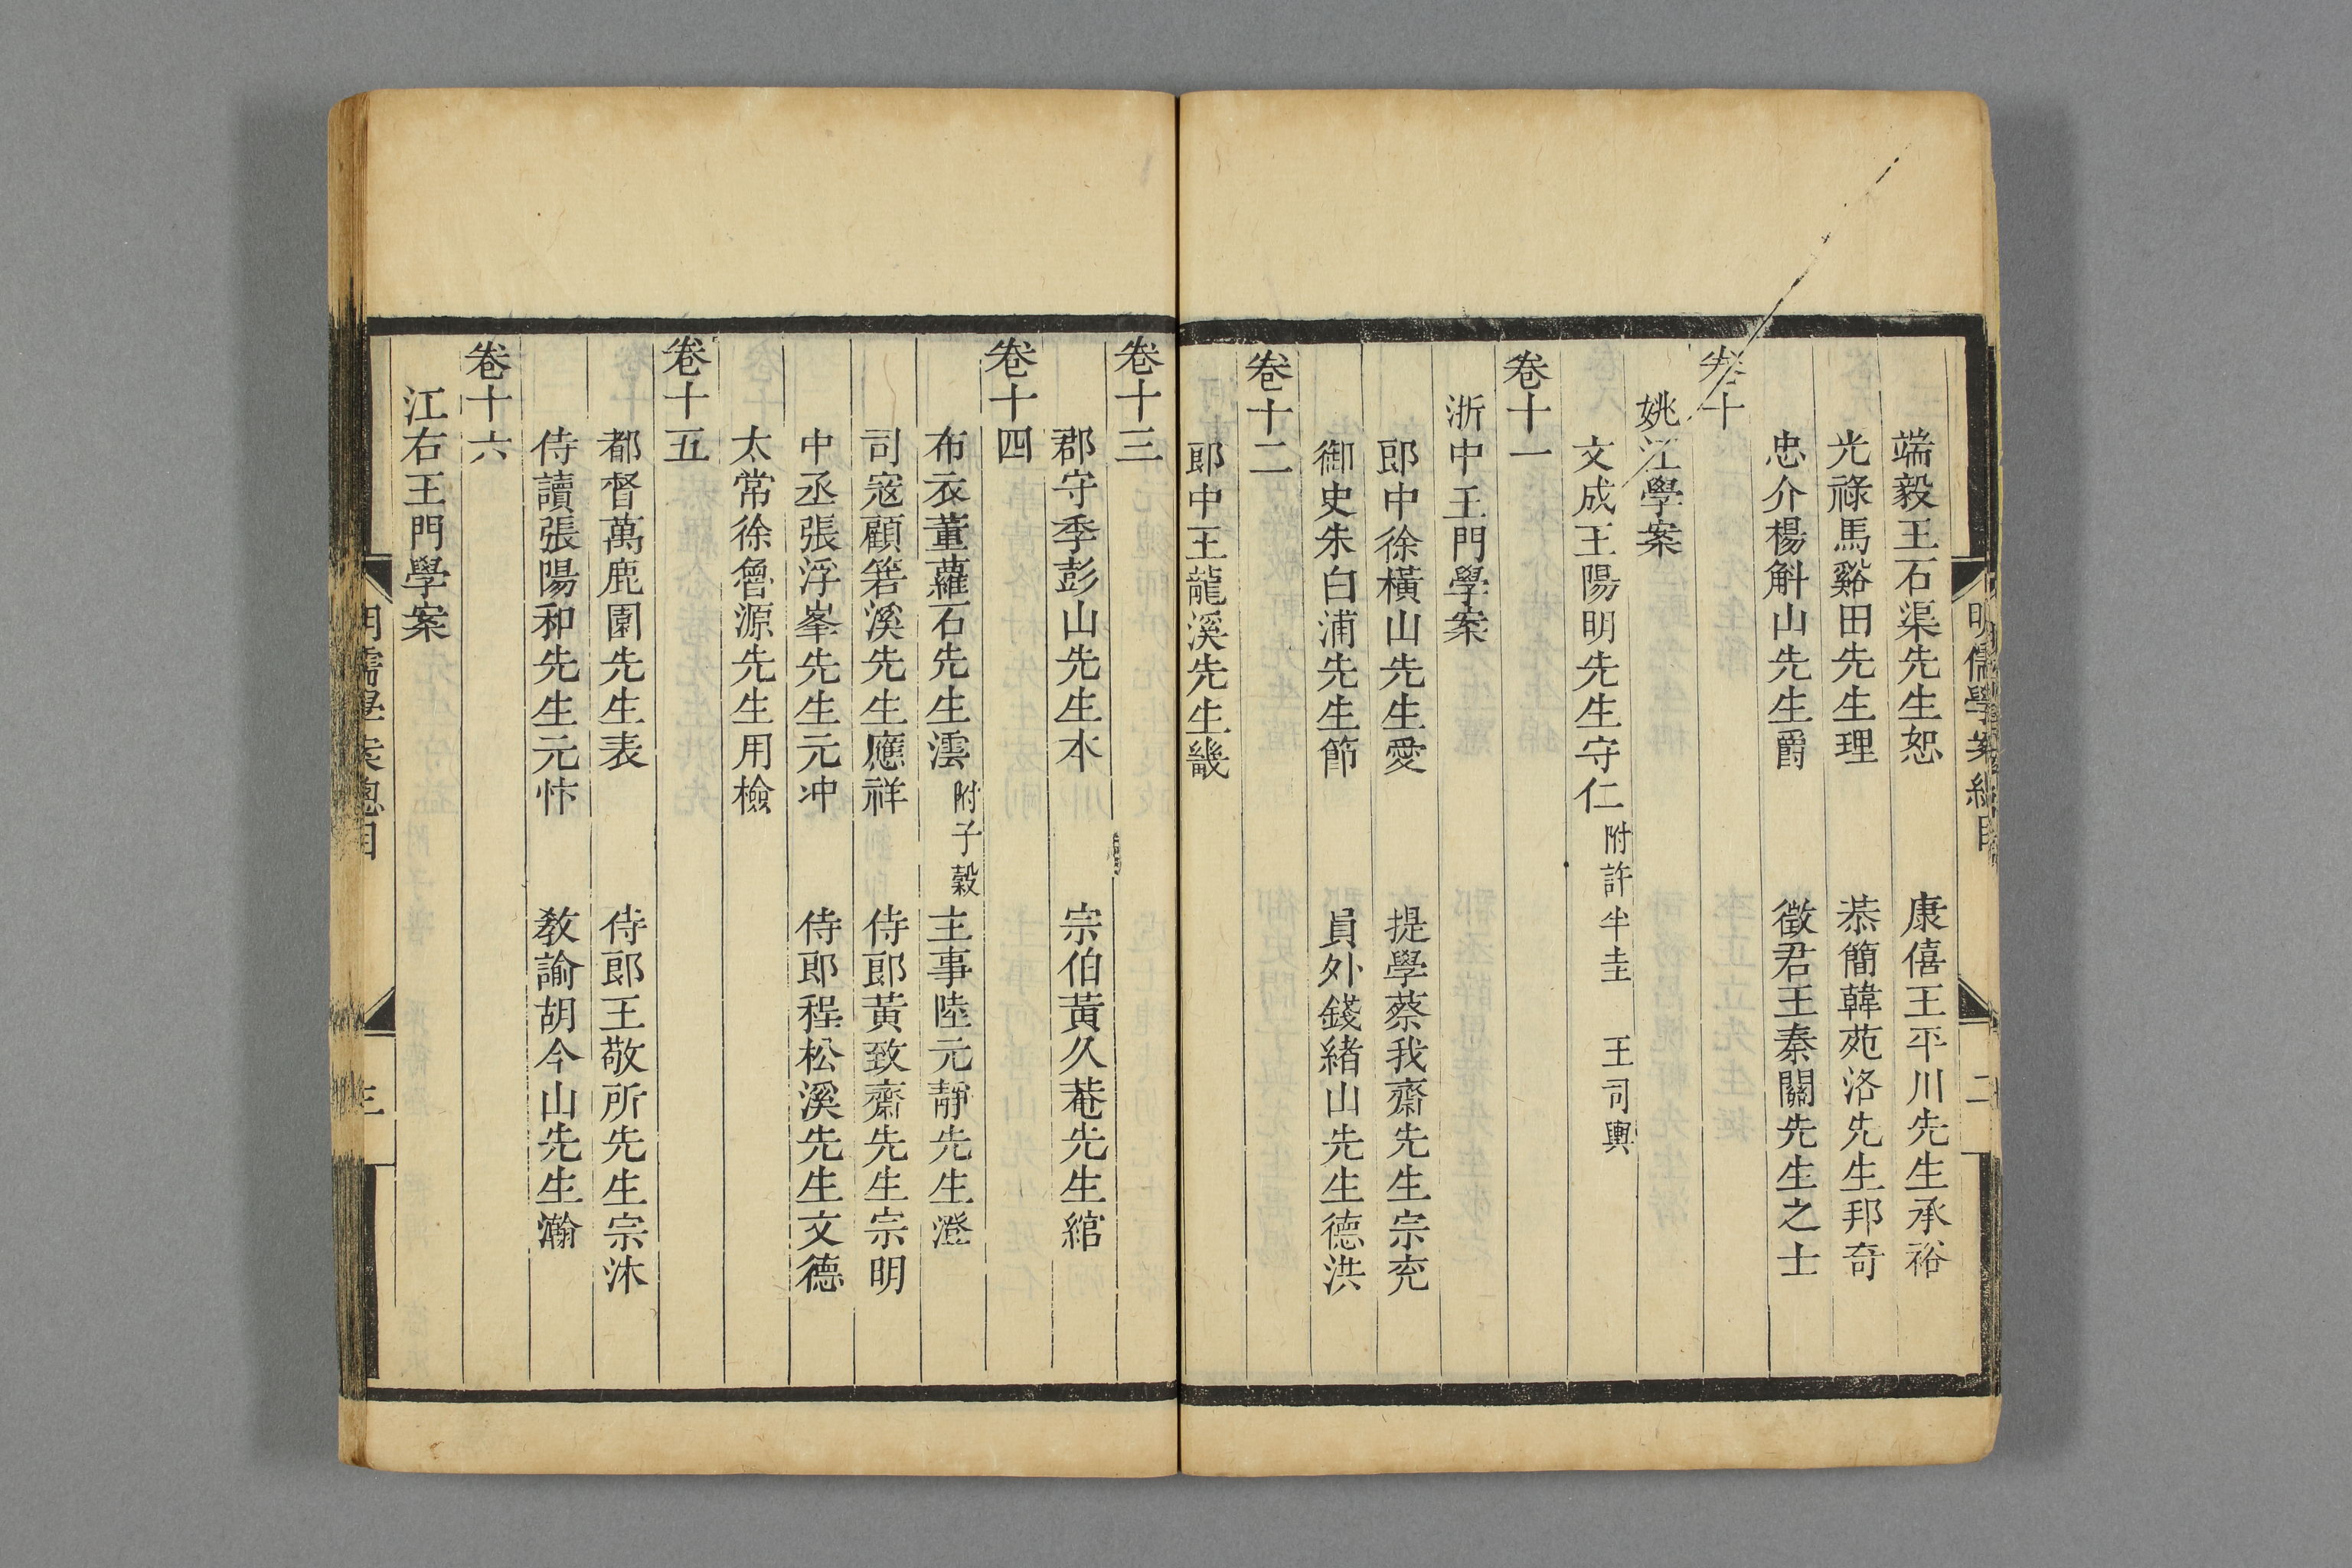 端毅王石渠先生恕 康僖王平川先生承裕
光祿馬谿田先生理 恭簡韓苑洛先生邦奇
忠介楊斛山先生爵 徵君王秦關先生之士
卷十
姚江學案
文成王陽明先生守仁 附許半圭 王司輿
卷十一
浙中王門學案
郎中徐橫山先生愛 提學蔡我齋先生宗兗
御史朱白浦先生節 員外錢緒山先生德洪
卷十二
郎中王龍溪先生畿
卷十三
郡守季彭山先生本 宗伯黃久菴先生綰
卷十四
布衣董蘿石先生澐 附子穀 主事陸元靜先生澄
司寇顧箬溪先生應祥 侍郎黃致齋先生宗明
中丞張浮峯先生元冲 侍郎程松溪先生文德
太常徐魯源先生用檢
卷十五
都督萬鹿園先生表 侍郎王敬所先生宗沐
侍讀張陽和先生元忭 教諭胡今山先生瀚
卷十六
江右王門學案
明儒學案總目 二
明儒學案總目 三